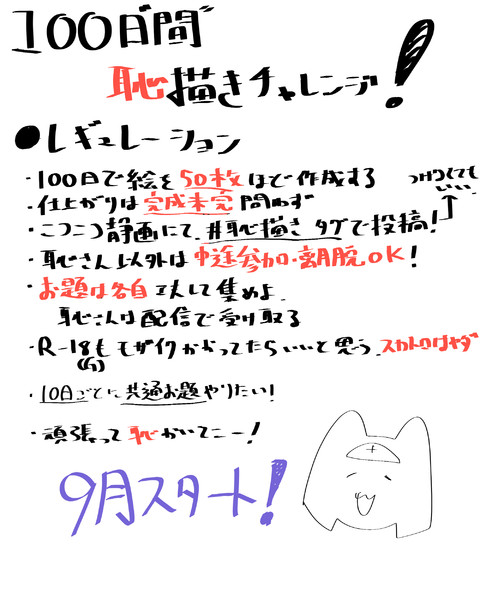 100日間
恥描きチャレンジ!
●レギュレーション
・100日で絵を50枚ほど作成する
・仕上がりは完成未完問わず
つけなくても
いい
・こつこつ静画にて#恥描きタグで投稿!
・恥さん以外は中途参加・離脱OK!
・お題は各自工夫して集めよ.
恥さんは配信で受け取る
・R-18もモザイクかかってたらいいと思う.スカトロはヤダ
(G)
・10日ごとに共通お題やりたい!
・頑張って恥かいてこー!
9月スタート!